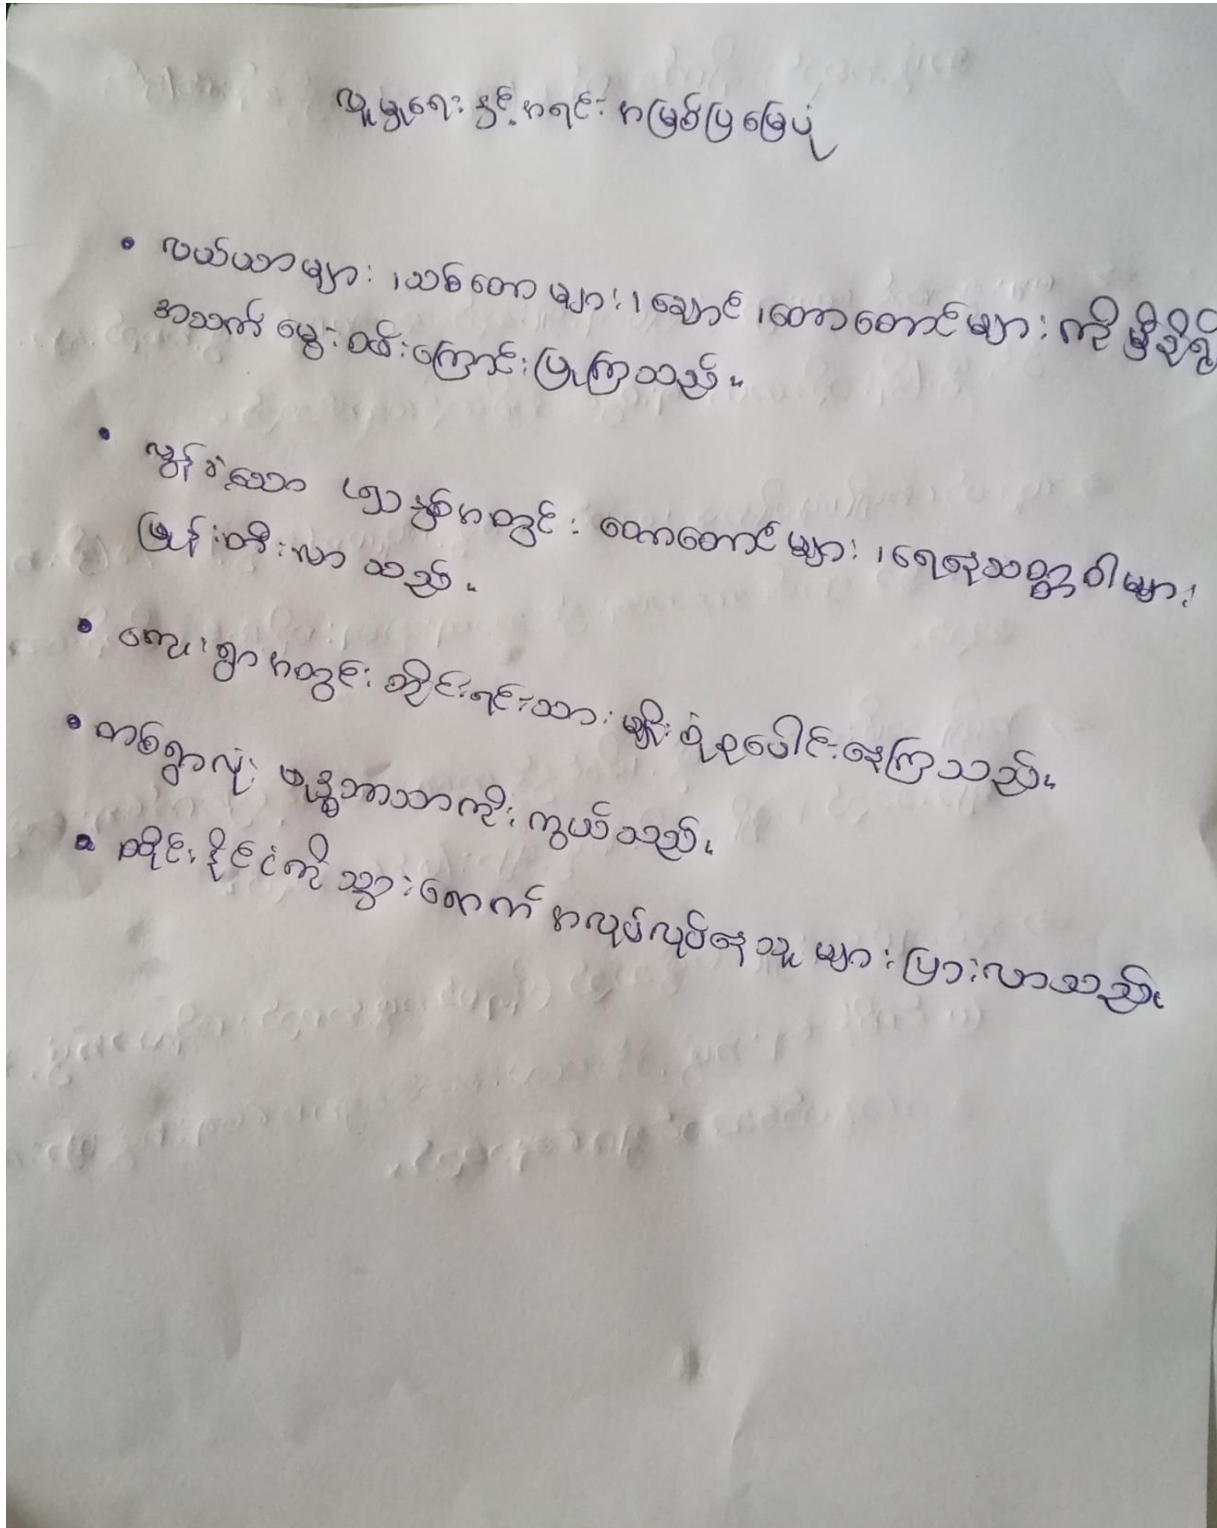 လူမှုရေး နှင့် အရင်း အမြစ်ပြ မြေပုံ
• လယ်ယာများ ၊သစ်တော များ၊ ချောင် ၊တောတောင်များ ကို မှီခိုရှိ
အသက် မွေး ဝမ်းကြောင်း ပြုကြသည်။
• လွန်ခဲ့သော ၅ နှစ်အတွင်း တောတောင် များ ၊ရေနေသတ္တဝါများ
ပြုန်းတီးလာ သည်။
• ကျေးရွာ အတွင်း တိုင်းရင်းသား မျိုး စုံစုပေါင်းနေကြသည်။
• တစ်ရွာလုံး ဗုဒ္ဓဘာသာကိုး ကွယ်သည်။
• ထိုင်းနိုင်ငံကို သွားရောက် အလုပ်လုပ်နေသူ များ ပြားလာသည်။